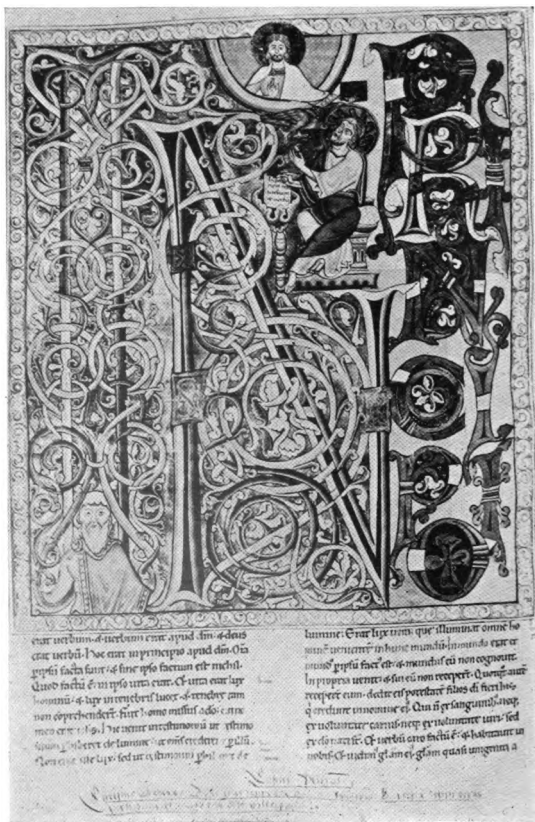 IN
PRINCIPIO
erat verbum. & verbum erat apud dm̄. & deus
erat verbū. Hoc erat in principio apud dm̄. Oīa
p ipsū facta sunt. & sine ipso factum est nichil.
Quod factū ē. in ipso vita erat. Et vita erat lux
hominū. & lux in tenebris lucet. & tenebre eam
non cōprehendert̄. Fuit homo missus a dō. cui no
men erat Hic venit in testimoniū ut testimo
de lumine. ut om̄s crederent p illū.
Non erat ille lux. sed ut testimoniū de
lumine. Erat lux vera. que illuminat omnē ho
minē venientē in hunc mundū. In mundo erat &
p ipsū fact' est. & mundus eū non cognovit.
In propria venit. & sui eū non recepert̄. Quotqt autē
recepert̄ eum. dedit eis potestatē filios di fieri his
q credunt in nomine ei'. Qui n̄ ex sanguinib; neq;
ex voluntate carnis. neq; ex voluntate viri. sed
ex do nati st̄. Et verbū caro factū ē. & habitavit in
nobis. Et vidim' glam ei'. glam quasi unigeniti a